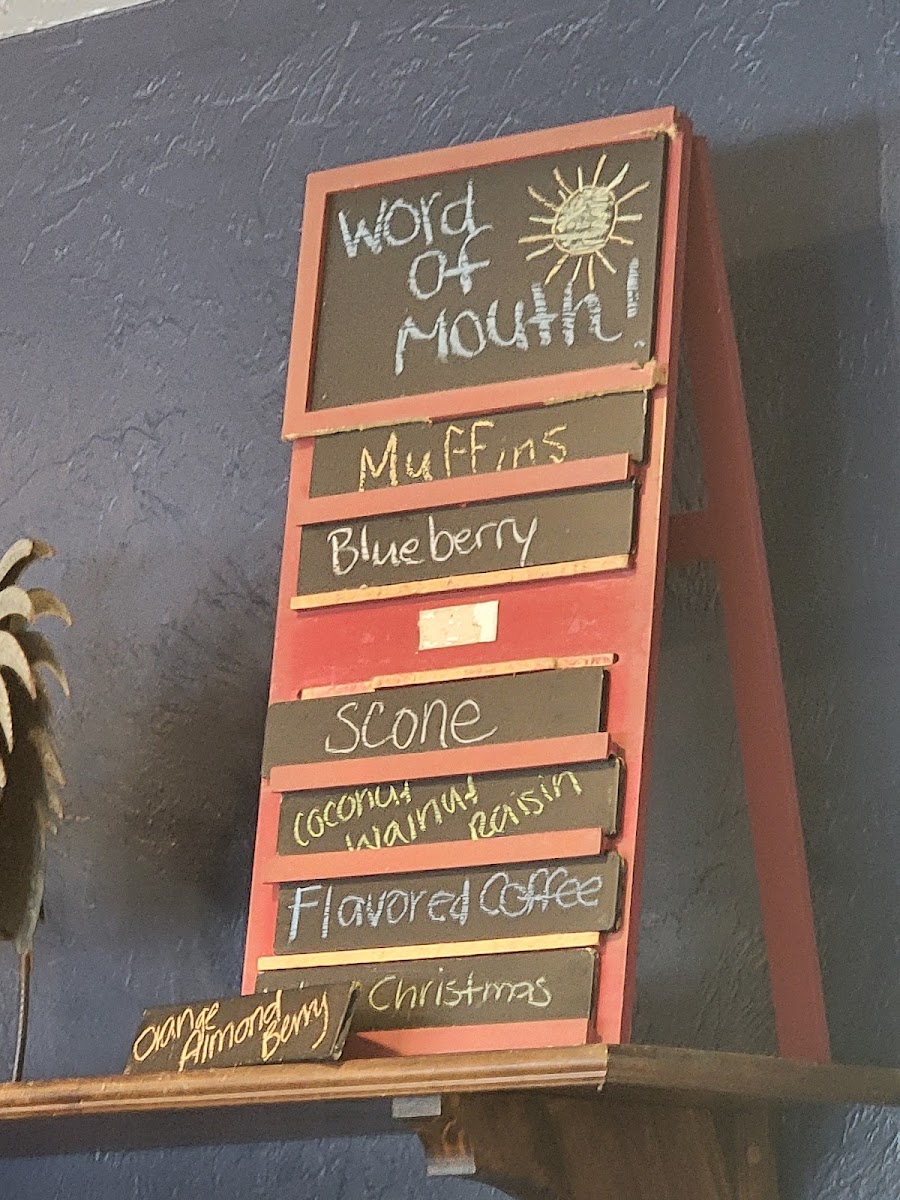 Word
Of
Mouth!
Muffins
Blueberry
Scone
Coconut
Walnut Raisin
Flavored Coffee
Christmas
Orange
Almond
Berry